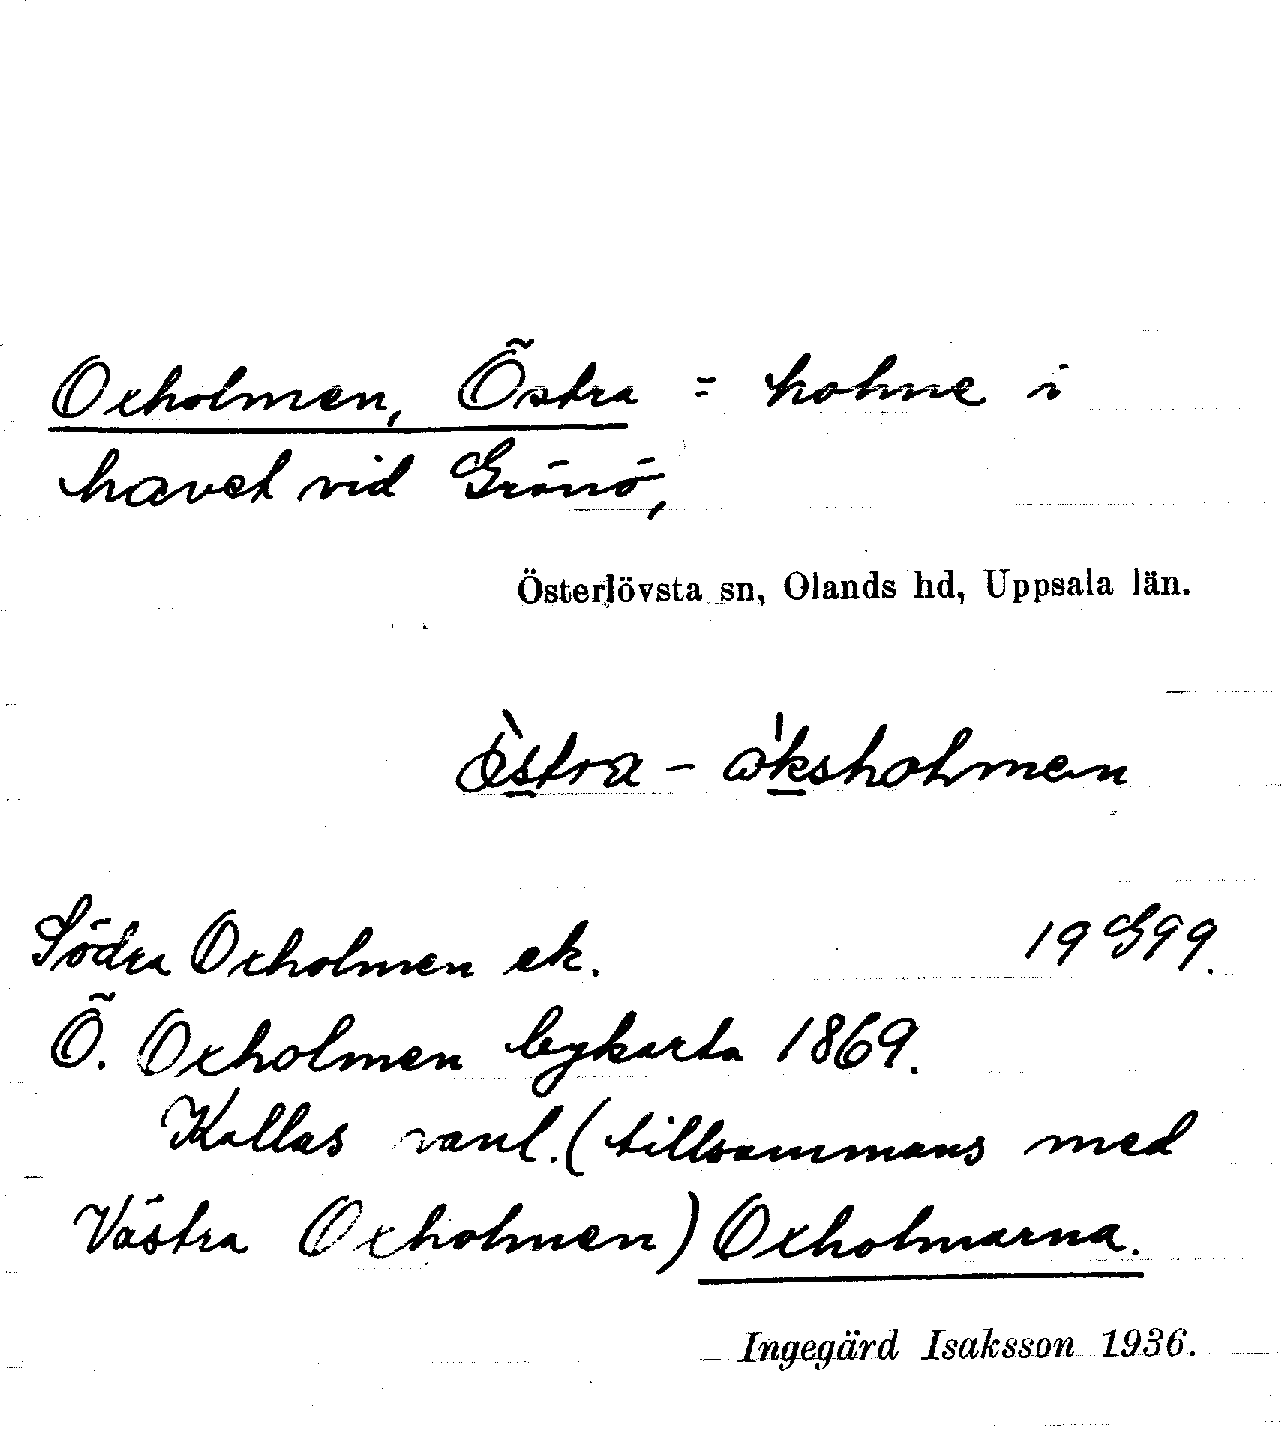 Oxholmen, Östra = holme i
havet vid Grönö,
Österlövsta sn, Olands hd, Uppsala län.
Södra Oxholmen ek. 19 G 99.
Ö. Oxholmen bykarta 1869.
Kallas vanl. (tillsammans med
Västra Oxholmen) Oxholmarna.
Ingegärd Isaksson 1936.